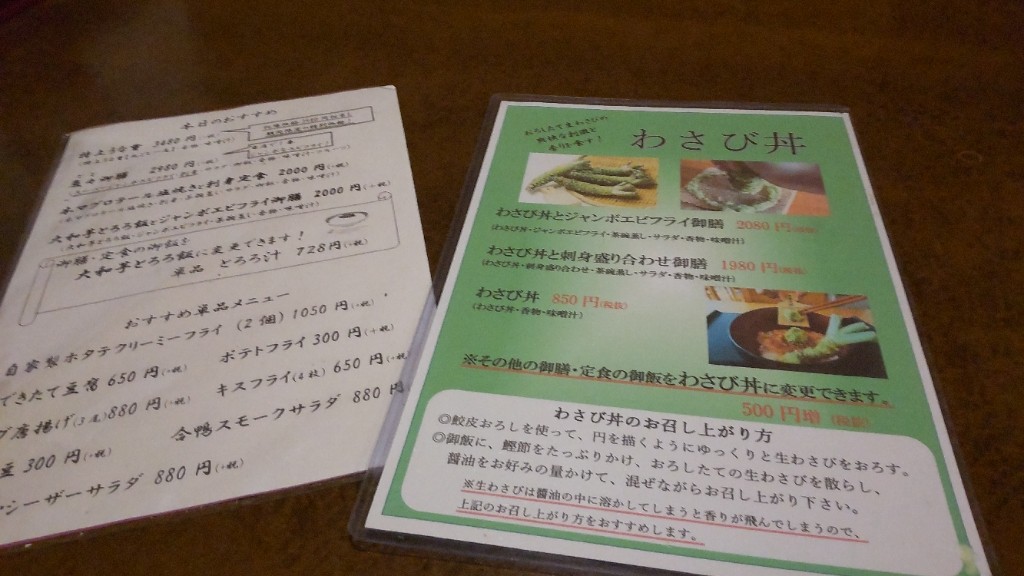 本日のおすすめ
特上うな重 3480円(+税)
2980円(+税)
本マグロカマ塩焼きと刺身定食 2000円(+税)
大和芋とろろ飯とジャンボエビフライ御膳 2000円(+税)
御膳・定食の御飯を
大和芋とろろ飯に変更できます!
単品 とろろ汁 728円(+税)
おすすめ単品メニュー
自家製ホタテクリーミーフライ (2個) 1050円(+税)
できたて豆腐 650円(+税) ポテトフライ 300円(+税)
唐揚げ(3尾) 880円(+税) キスフライ(4枚) 650円(+税)
豆 300円(+税) 合鴨スモークサラダ 880円
シーザーサラダ 880円(+税)
おろしたて生わさびの
香りを食す!
わさび丼
わさび丼とジャンボエビフライ御膳 2080円(税抜)
(わさび丼・ジャンボエビフライ・茶碗蒸し・サラダ・香物・味噌汁)
わさび丼と刺身盛り合わせ御膳 1980円(税抜)
(わさび丼・刺身盛り合わせ・茶碗蒸し・サラダ・香物・味噌汁)
わさび丼 850円(税抜)
(わさび丼・香物・味噌汁)
※その他の御膳・定食の御飯をわさび丼に変更できます。
500円増 (税抜)
わさび丼のお召し上がり方
◎鮫皮おろしを使って、円を描くようにゆっくりと生わさびをおろす。
◎御飯に、鰹節をたっぷりかけ、おろしたての生わさびを散らし、
醤油をお好みの量かけて、混ぜながらお召し上がり下さい。
※生わさびは醤油の中に溶かしてしまうと香りが飛んでしまうので、
上記のお召し上がり方をおすすめします。